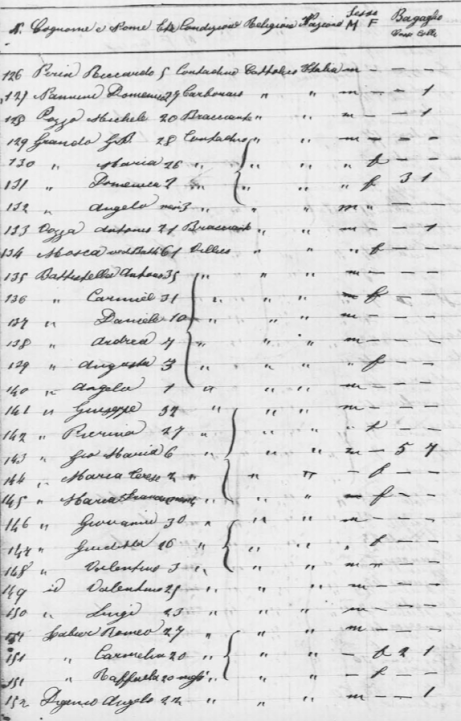 N. Cognome e Nome Età Condizione Religione Nazione Sesso M F Bagaglio Peso Colli
126 Riccardo 5 Contadino Cattolico Italia m — — —
127 Domenico 27 Carbonaio " " m — — 1
128 Pozza Michele 20 Bracciante " " m — — 1
129 Grando G.B. 28 Contadino " " m — — —
130 " Maria 26 " " " " f — —
131 " Domenica 7 " " " " f 3 1
132 " Angelo 3 " " " m " — —
133 Pozza Antonio 21 Bracciante " " m — — 1
134 Mosca 61 Villico " " " f — —
135 Battistella Antonio 35 " " " m — — —
136 " 31 " " " f — —
137 " Daniele 10 " " " m — — —
138 " Andrea 7 " " " m — — —
139 " Augusta 3 " " " f — —
140 " Angelo 1 " " " m — — —
141 " Giuseppe 32 " " " m — — —
142 " Pierina 27 " " " f — —
143 " Gio Maria 6 " " " m — 5 7
144 " Maria 2 " " " — f — —
145 " Maria " " " f — —
146 " Giovanni 30 " " " m — — —
147 " 26 " " " " f — —
148 " Valentino 3 " " " m — —
149 id Valentino 25 " " " m — — —
150 " Luigi 23 " " " m — — —
151 Romeo 27 " " " m — — —
151 " Carmelia 20 " " " — f 2 1
151 " Raffaela 20 " " " — f — —
152 Angelo 22 " " " m — — 1